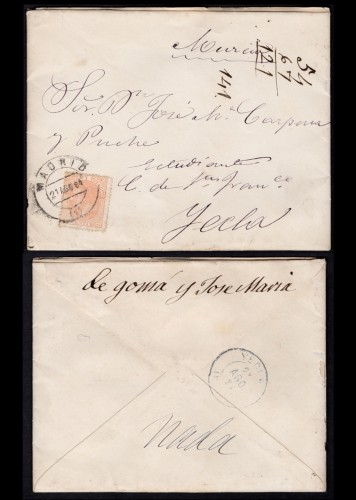 Murcia
54
67
121
141
Sor. Dn. José Ma. Carpena
y Puche
Estudiante
C. de Sn. Franco.
Yecla
MADRID
21 AGO 84
(3)
de goma y Jose Maria
YECLA
AGO
Nada